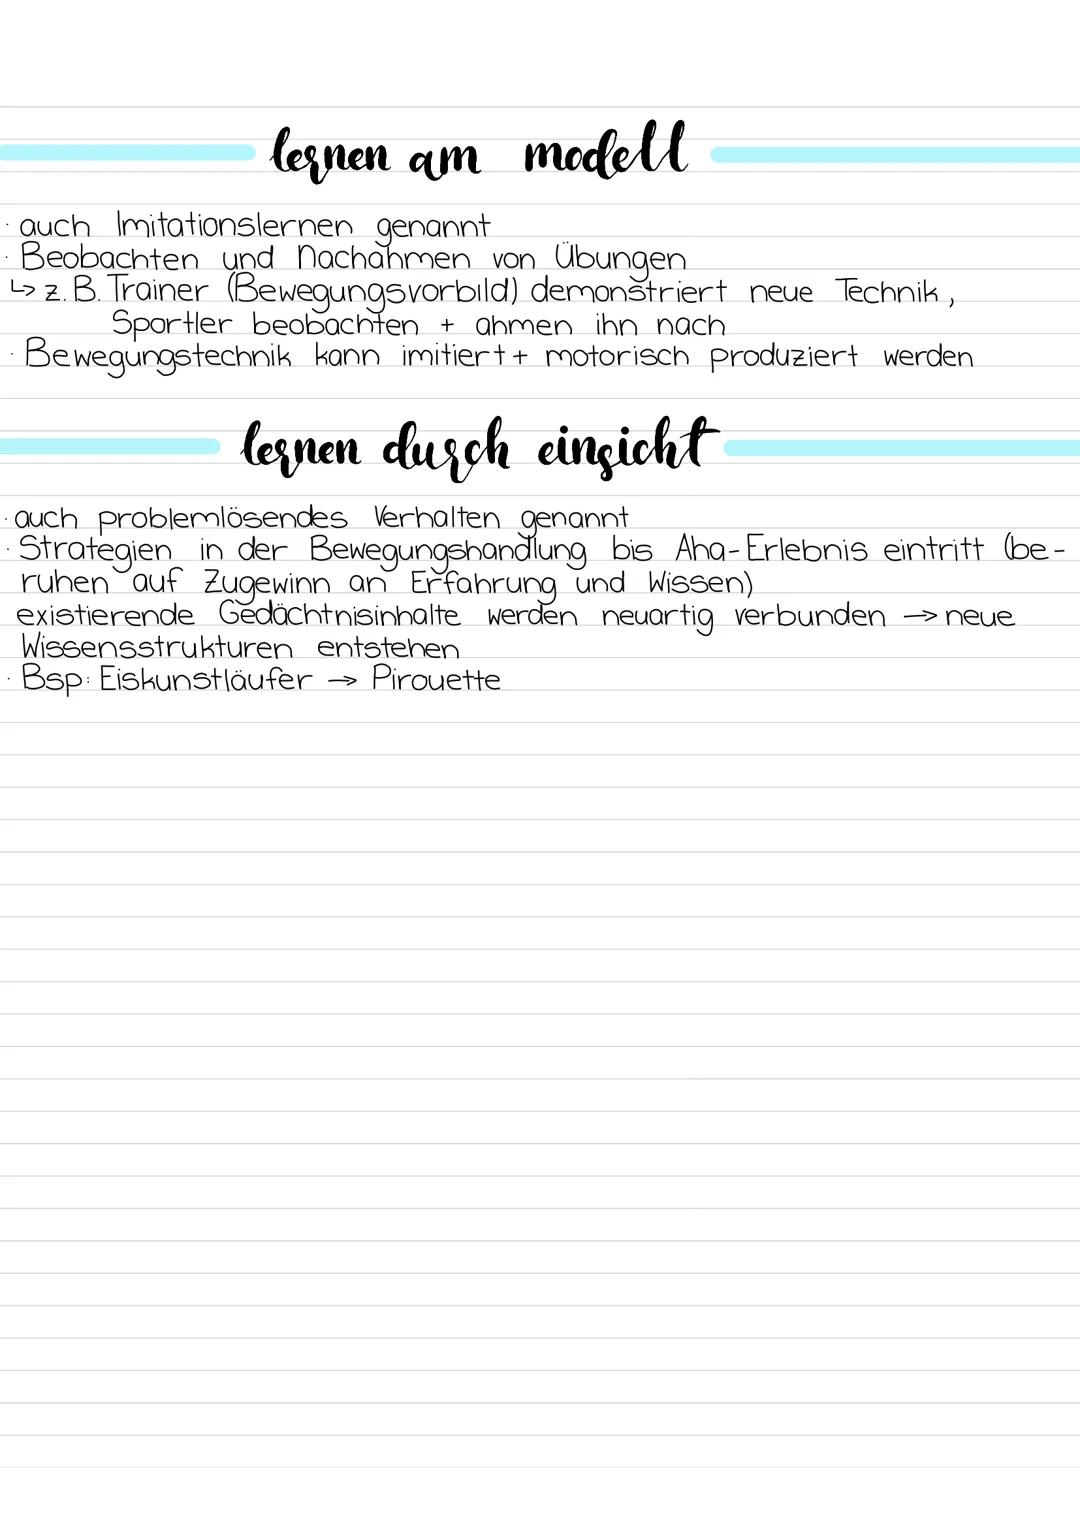 lernen am modell
· auch Imitationslernen genannt
· Beobachten und Nachahmen von Übungen
↳ z.B. Trainer (Bewegungsvorbild) demonstriert neue Technik,
Sportler beobachten + ahmen ihn nach
· Bewegungstechnik kann imitiert + motorisch produziert werden
lernen durch einsicht
· auch problemlösendes Verhalten genannt
· Strategien in der Bewegungshandlung bis Aha-Erlebnis eintritt (be-
ruhen auf Zugewinn an Erfahrung und Wissen)
existierende Gedächtnisinhalte werden neuartig verbunden → neue
Wissensstrukturen entstehen
· Bsp: Eiskunstläufer → Pirouette